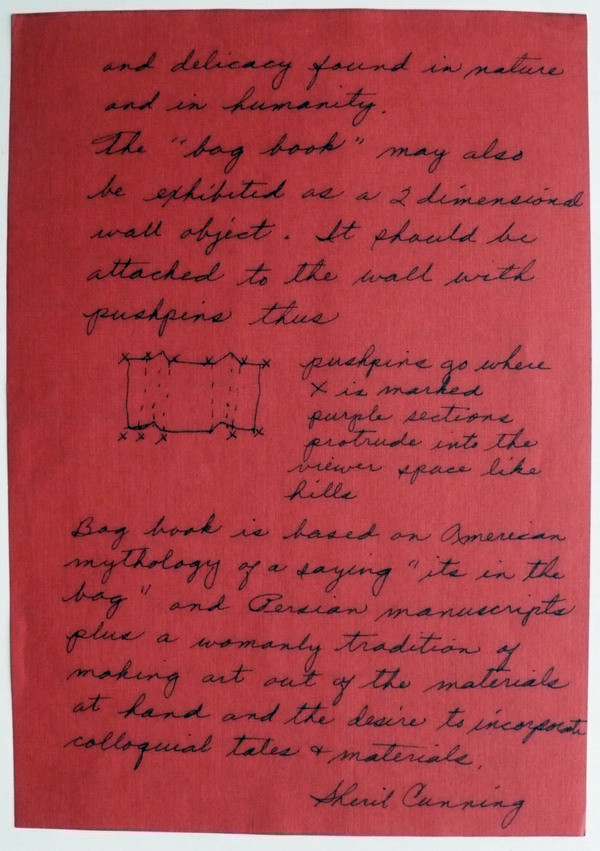 and delicacy found in nature
and in humanity.
The "bag book" may also
be exhibited as a 2 dimensional
wall object. It should be
attached to the wall with
pushpins thus
pushpins go where
X is marked
purple sections
protrude into the
viewer space like
hills
Bag book is based on American
mythology of a saying "its in the
bag" and Persian manuscripts
plus a womanly tradition of
making art out of the materials
at hand and the desire to incorporate
colloquial tales & materials.
Sheril Cunning